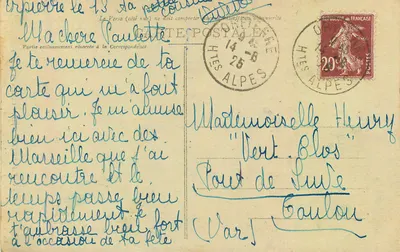 Orpierre le 13
Le Verso
CARTE POSTALE
Ma chère Paulette
Partie exclusivement réservée à la Correspondance
Je te remercie de ta
carte qui m'a fait
plaisir. Je m'amuse
bien ici avec des
Marseille que j'ai
rencontré et le
temps passe bien
rapidement. Je
t'embrasse bien fort
à l'occasion de ta fête
ORPIERRE
14 -6
26
HTES ALPES
ORPIERRE
HTES ALPES
FRANÇAISE
20
Mademoiselle Henry
"Vert Clos"
Pont de Suve
Toulon
(Var)